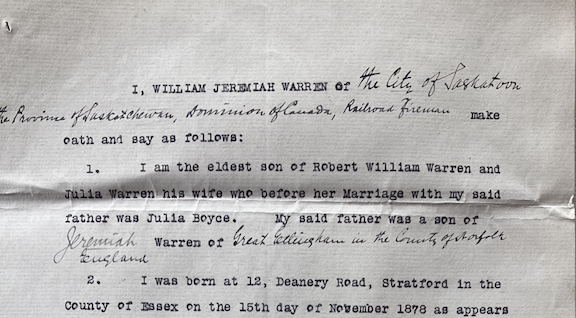 I, WILLIAM JEREMIAH WARREN of the City of Saskatoon
the Province of Saskatchewan, Dominion of Canada, Railroad Fireman make
oath and say as follows:
1. I am the eldest son of Robert William Warren and
Julia Warren his wife who before her Marriage with my said
father was Julia Boyce. My said father was a son of
Jeremiah Warren of Great Ellingham in the County of Norfolk
England
2. I was born at 12, Deanery Road, Stratford in the
County of Essex on the 15th day of November 1878 as appears